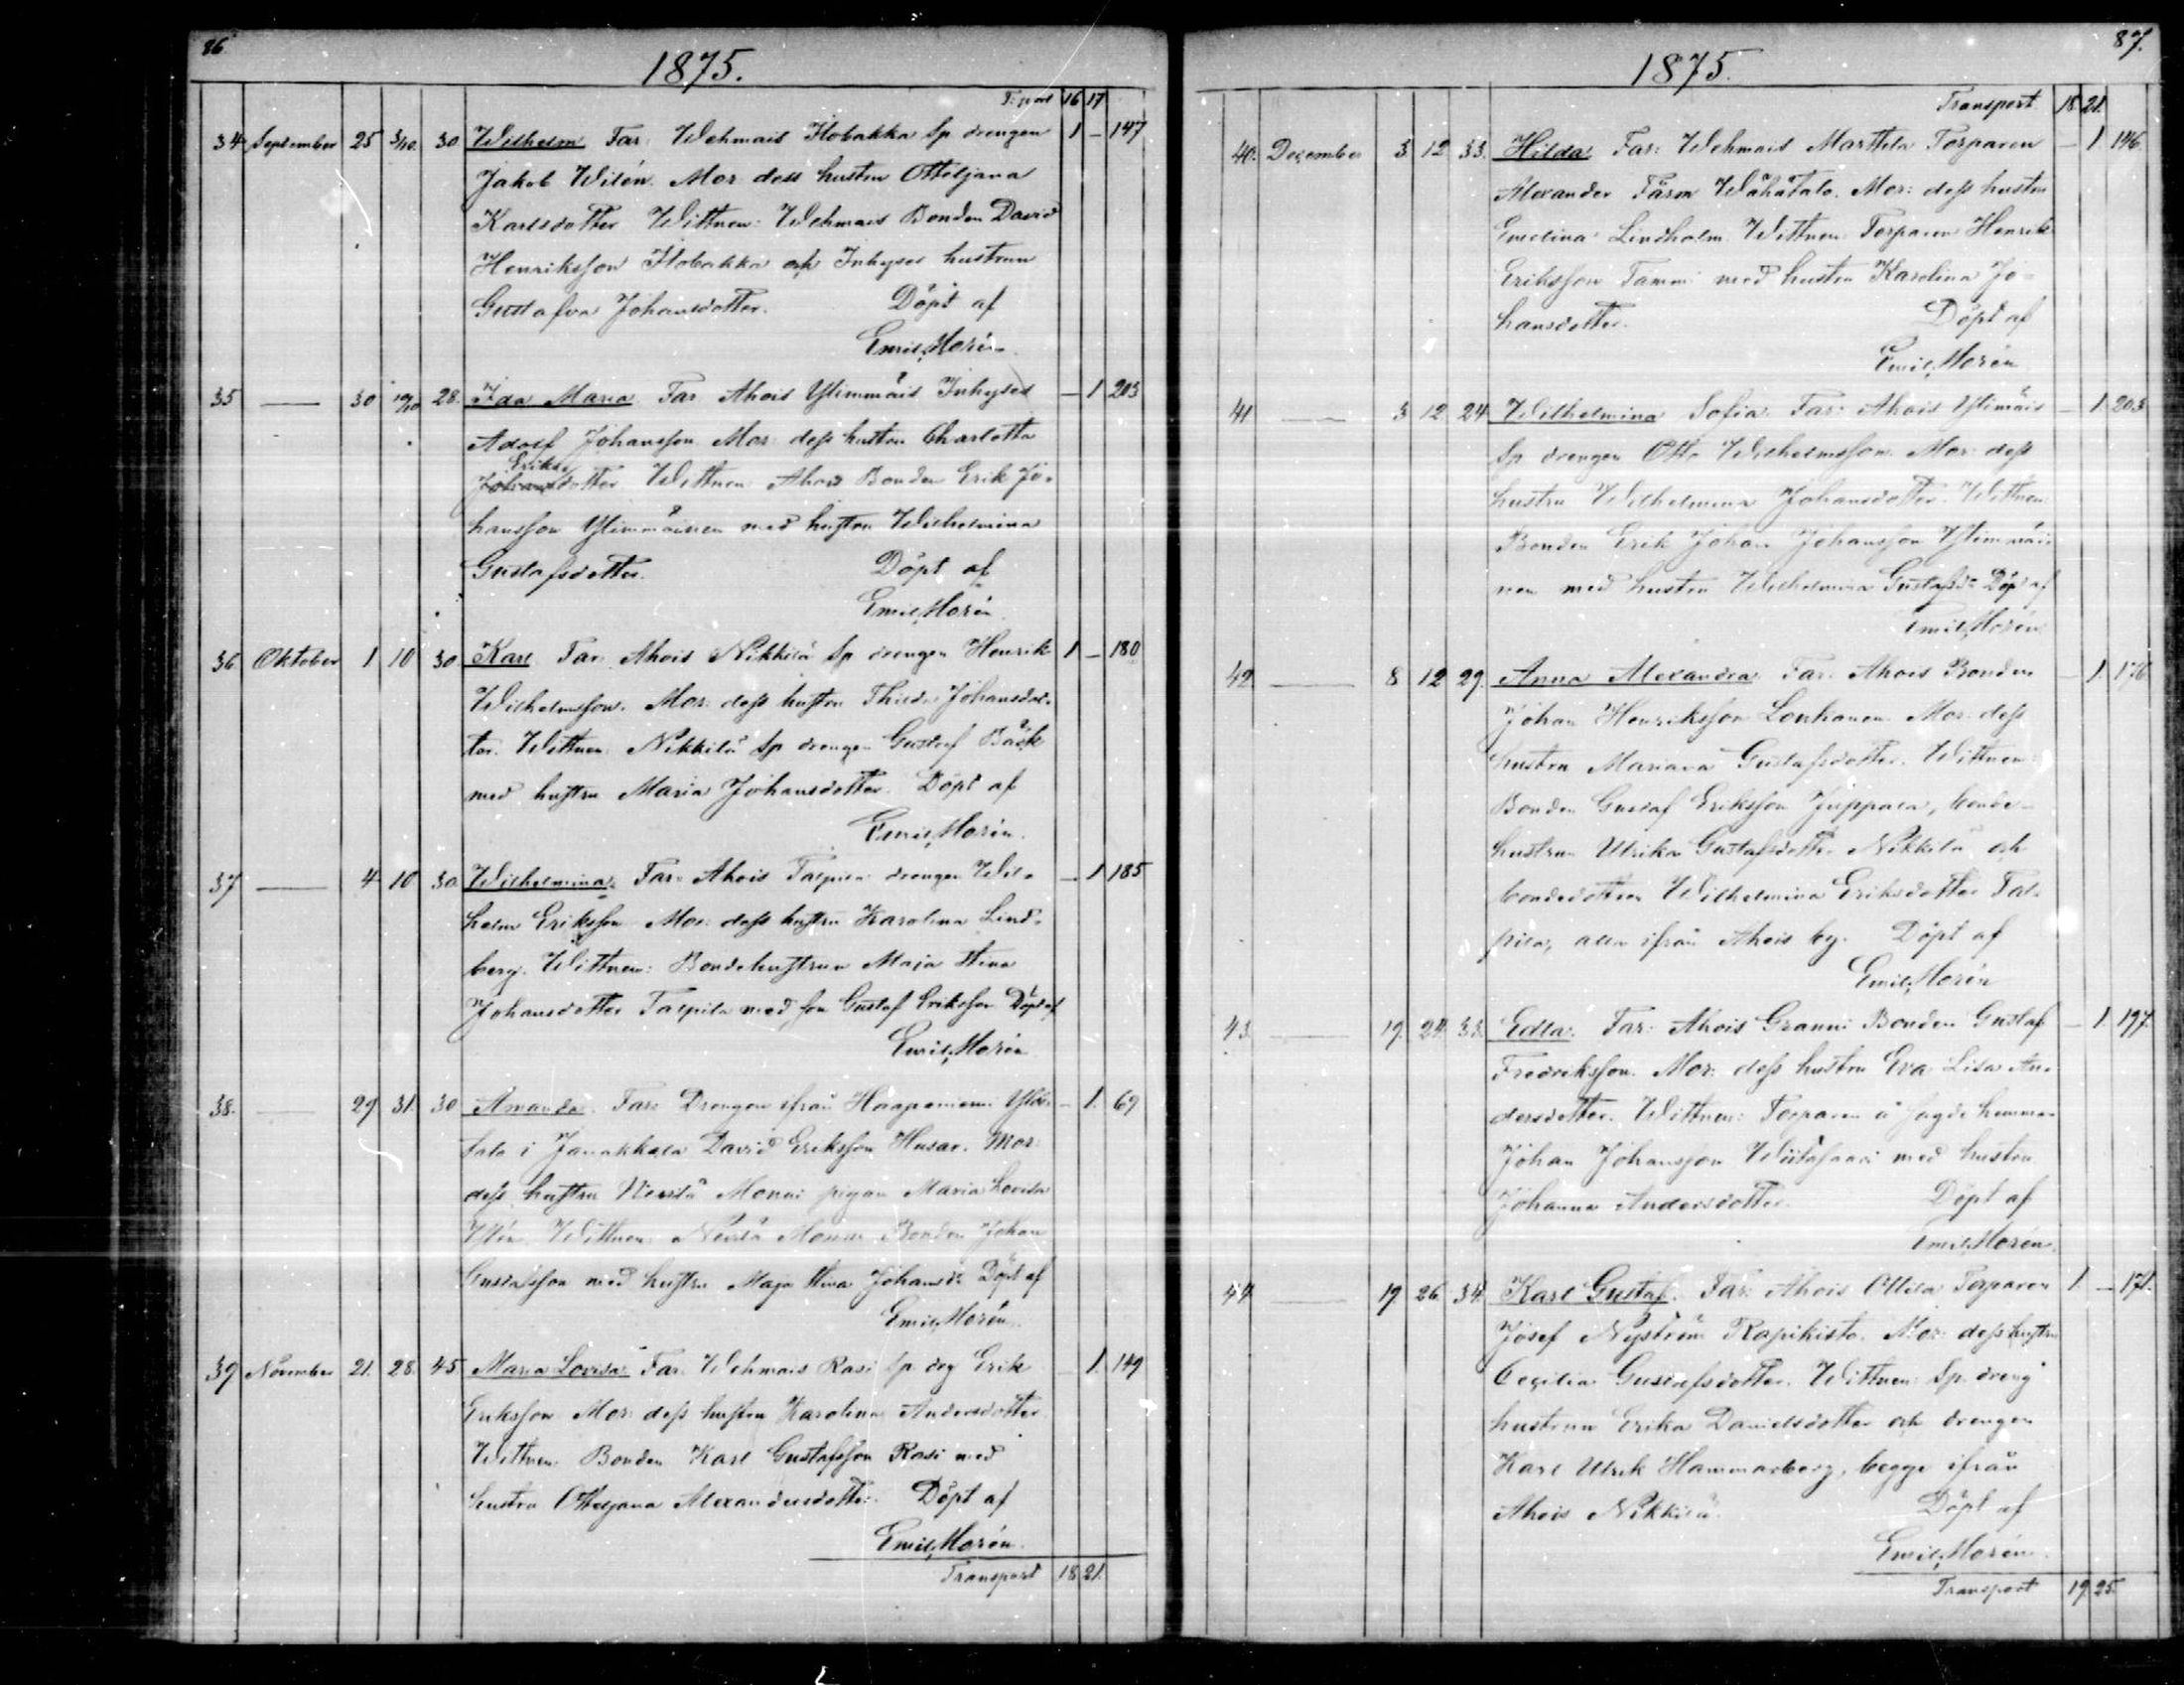 86
1875.
T:port 16 17
34 September 25 3/10. 30. Wilhelm Far: Wehmais Hobakka Sp drengen 1 – 147
Jakob Wilén. Mor dess hustru Otteljana
Karlsdotter Wittnen: Wehmais Bonden David
Henriksson Hobakka och Inhyses hustrun
Gustafva Johansdotter. Döpt af
Emil Morén
35 — 30 10/10 28. Ida Maria Far Ahois Ylimmäis Inhyses – 1 203
Adolf Johansson Mor: dess hustru Charlotta
Eriks
Johansdotter Wittnen Ahois Bonden Erik Jo-
hansson Ylimmäinen med hustru Wilhelmina
Gustafsdotter. Döpt af
Emil Morén
36 Oktober 1 10 30. Karl Far: Ahois Nikkilä Sp drengen Henrik 1 – 180
Wilhelmsson. Mor: dess hustru Thilda Johansdot-
ter. Wittnen Nikkilä Sp drengen Gustaf Bäck
med hustru Maria Johansdotter. Döpt af
Emil Morén.
37 — 4 10 30. Wilhelmina Far: Ahois Talpila drengen Wil- – 1 185
helm Eriksson Mor: dess hustru Karolina Lind-
berg. Wittnen: Bondehustrun Maja Stina
Johansdotter Talpila med son Gustaf Eriksson Döpt af
Emil Morén
38. — 29 31. 30 Amanda. Far: Drengen ifrån Haapaniemi – 1. 69
i Janakkala David Eriksson Husar. Mor:
dess hustru Monni pigan Maria Lovisa
Wittnen Monni Bonden Johan
Gustafsson med hustru Maja Stina Johansdr Döpt af
Emil Morén.
39 November 21. 28. 45 Maria Lovisa. Far. Wehmais Rasi Sp drg Erik – 1. 149
Eriksson Mor: dess hustru Karolina Andersdotter
Wittnen Bonden Karl Gustafsson Rasi med
hustru Otteljana Alexandersdotter. Döpt af
Emil Morén.
Transport 18 21.
87.
1875.
Transport 18 21.
40. December 3 12 33. Hilda Far: Wehmais Marttila Torparen – 1. 146.
Alexander Färm Wähätalo. Mor: dess hustru
Emelina Lindholm Wittnen Torparen Henrik
Eriksson Tammi med hustru Karolina Jo-
hansdotter. Döpt af
Emil Morén
41 — 3 12 24 Wilhelmina Sofia. Far: Ahois Ylimäis – 1. 203
Sp drengen Otto Wilhelmsson. Mor: dess
hustru Wilhelmina Johansdotter. Wittnen
Bonden Erik Johan Johansson Ylimmäi-
nen med hustru Wilhelmina Gustafsdr Döpt af
Emil Morén.
42 — 8 12 29. Anna Alexandra Far: Ahois Bonden – 1. 176
Johan Henriksson Mor: dess
hustru Mariana Gustafsdotter. Wittnen:
Bonden Gustaf Eriksson Juppala, bonde-
hustrun Ulrika Gustafsdotter Nikkilä och
bondedottren Wilhelmina Eriksdotter Tal-
pila, alla ifrån Ahois by. Döpt af
Emil Morén
43. — 19. 24. 33. Edla. Far: Ahois Granni Bonden Gustaf – 1. 197.
Fredriksson. Mor: dess hustru Eva Lisa An-
dersdotter. Wittnen: Torparen å hemman
Johan Johansson Wiitasaari med hustru
Johanna Andersdotter. Döpt af
Emil Morén.
44 — 19. 26. 34. Karl Gustaf. Far: Ahois Ottila Torparen 1. – 171.
Josef Nyström Rapikisto. Mor: dess hustru
Cecilia Gustafsdotter. Wittnen: Sp. dreng
hustrun Erika Danielsdotter och drengen
Karl Ulrik Hammarberg, begge ifrån
Ahois Nikkilä. Döpt af
Emil Morén.
Transport 19. 25.